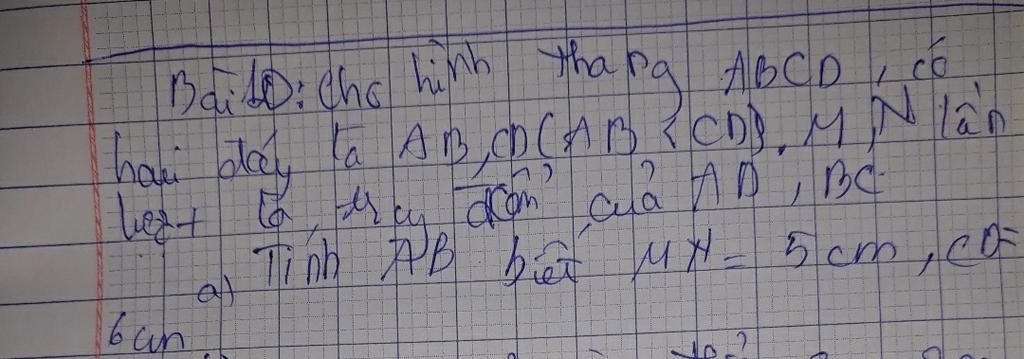 Bài 10: Cho hình thang ABCD, có
hai đáy là AB, CD (AB < CD). M, N lần
lượt là trung điểm của AD, BC.
a) Tính AB biết MN = 5 cm, CD =
6 cm